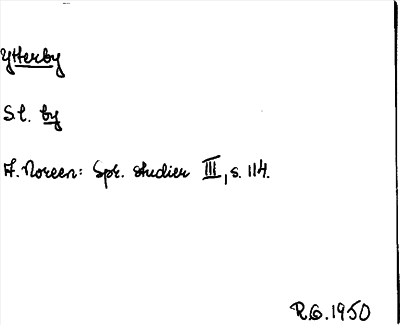 Ytterby
S.l. by
A. Noreen: Spr. studier III, s. 114.
R.G. 1950